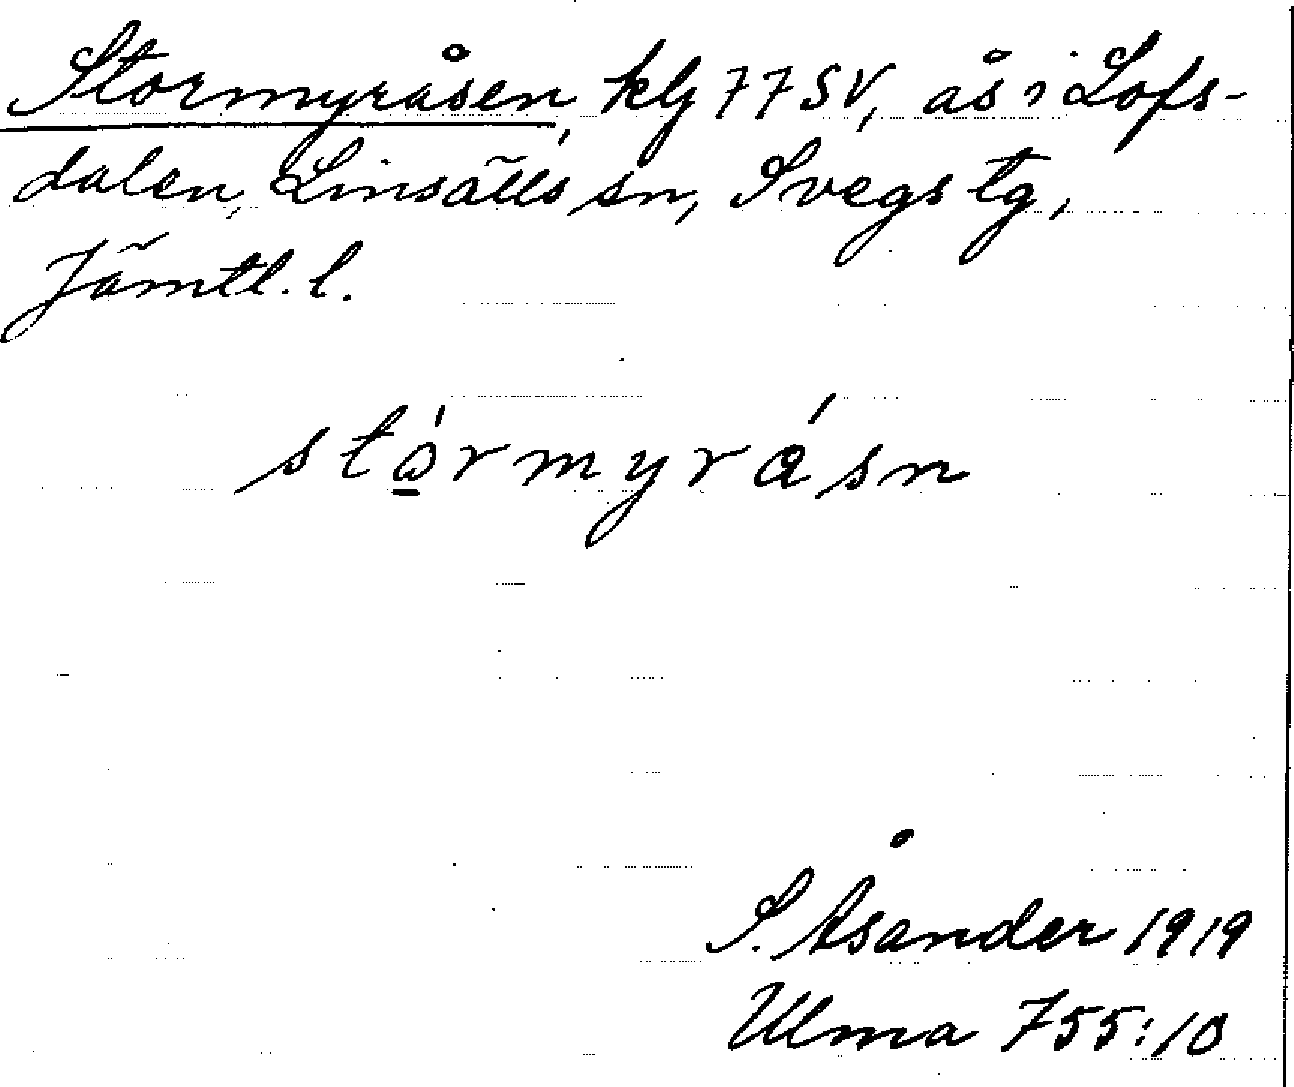 Stormyråsen, klj 77 SV, ås i Lofs-
dalen, Linsälls sn, Svegs tg,
Jämtl. l.
stó̲rmyrásn
S. Åsander 1919
Ulma 755:10